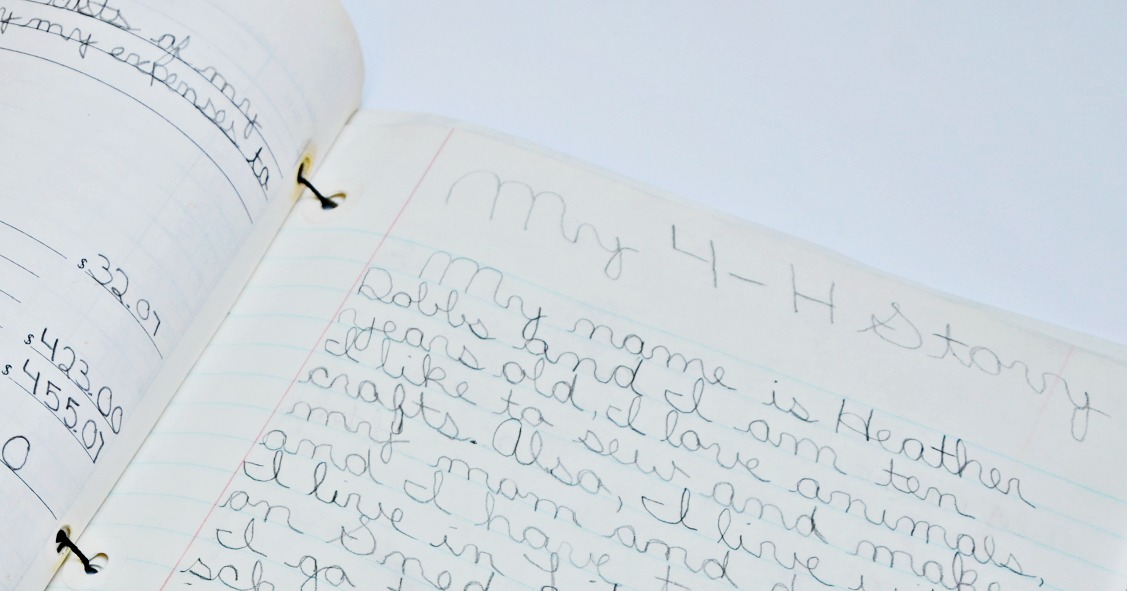 of my
my expenses to
$32.07
$423.00
$455.07
0
My 4-H Story
My name is Heather
Dobbs and I am ten
years old, I love animals,
I like to sew and make
crafts. Also, I live
my mom and
and I have
I live in
on
I go